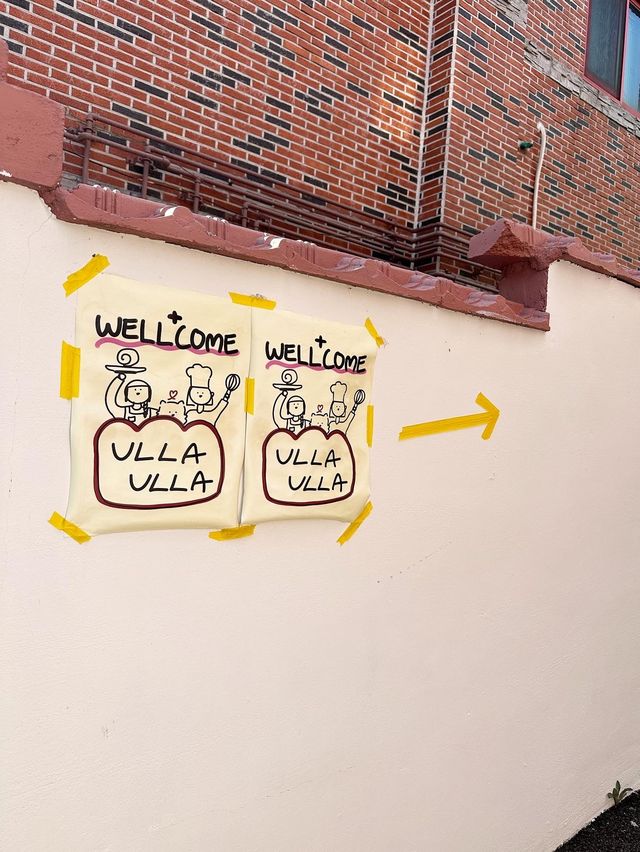 WELLCOME
ULLA
ULLA
WELLCOME
ULLA
ULLA